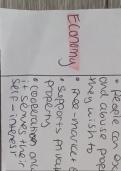 Economy
• People can ow
and abuse prope
they wish to
• free-market e
• supports priva
property
• cooperation onl
it serves their
self-interest